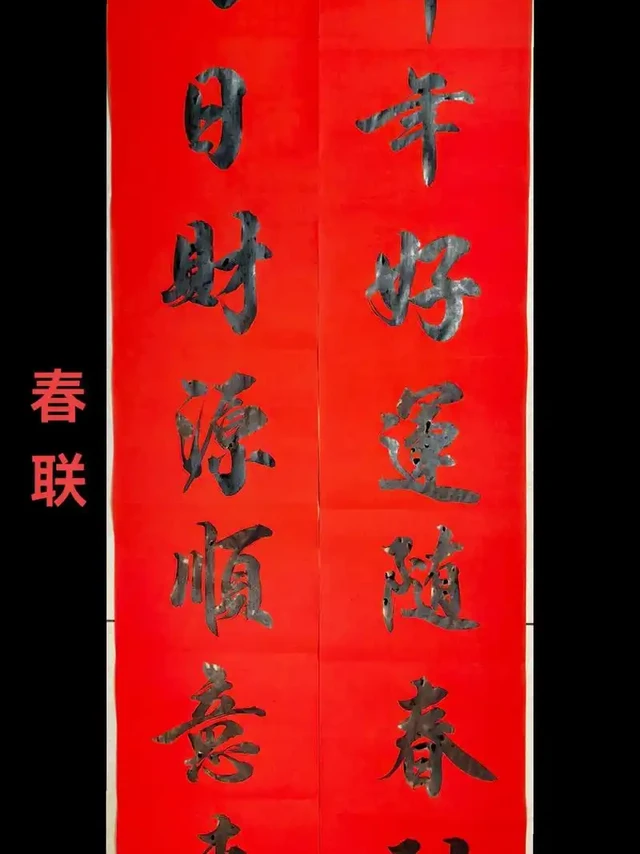 年好運随春
日財源順意
春联